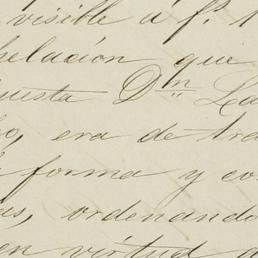 visible á f.
pelación que
uesta Dn La
o, era de tra
forma y co
as, ordenando
en virtud d